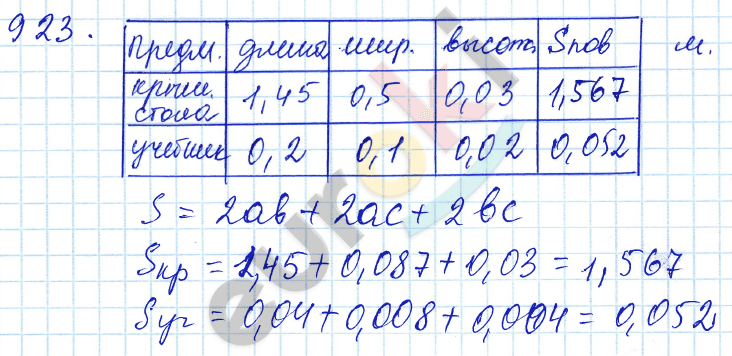 923.
Предм. длина шир. высота Sпов м.
крыш. стола 1,45 0,5 0,03 1,567
учебник 0,2 0,1 0,02 0,052
S = 2ab + 2ac + 2bc
Sкр = 1,45 + 0,087 + 0,03 = 1,567
Sуч = 0,04 + 0,008 + 0,004 = 0,052
euroki